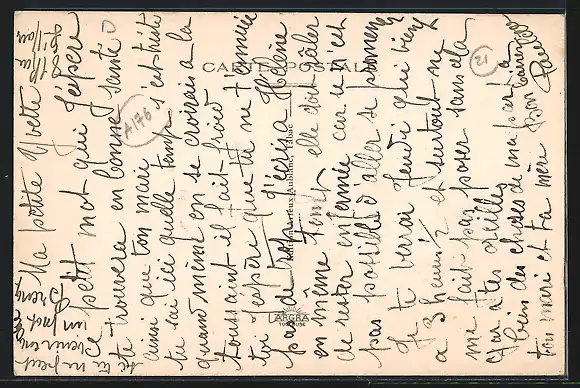 Ma petite Yvette
ce petit mot qui j'espère
te trouvera en bonne santé
ainsi que ton mari
tu sai ici quelle temps s'est triste
quand meme on se croirais a la
toussaint il fait froid
toi j'éspère que tu ne t'ennuie
pas de trop J'écris a Hélène
en même temps elle doit râler
de rester enfermée car ce n'est
pas possible d'aller se promener
Je te verrai Jeudi qui vient
a 3 heures 1/2 et surtout ne
me fait pas poser sans cela
gar a tes oreilles
bien des choses de ma part a
ton mari et ta mère Bon
Paulo
si tu peut
venir
un mot
A176
21
CARTE POSTALE
ARGRA
TOULOUSE